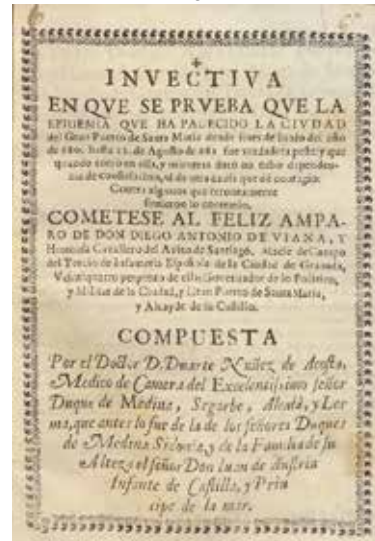 INVECTIVA
EN QVE SE PRVEBA QVE LA
EPIDEMIA QVE HA PADECIDO LA CIVDAD
del Gran Puerto de Santa Maria desde fines de Junio del año
de 680. hasta 12. de Agosto de 681 fue verdadera peste, y que
quando entrò en ella, y mientras durò no hubo dependen-
cia de constelacion, ni de otra causa que de contagio.
Contra algunos que
sintieron lo contrario.
COMETESE AL FELIZ AMPA-
RO DE DON DIEGO ANTONIO DE VIANA, Y
Cavallero del Avito de Santiago, Maese de Campo
del Tercio de Infanteria Española de la Ciudad de Granada,
Veintiquatro perpetuo de ella, Governador de lo Politico,
y Militar de la Ciudad, y Gran Puerto de Santa Maria,
y Alcayde de su Castillo.
COMPUESTA
Por el Doctor D. Duarte Nuñez de Acosta,
Medico de Camera del Excelentissimo señor
Duque de Medina, Segorbe, Alcalà, y Ler
ma, que antes lo fue de la de los señores Duques
de Medina Sidonia, y de la Familia de su
Alteza el señor Don Iuan de Austria
Infante de Castilla, y Prin
cipe de la mar.